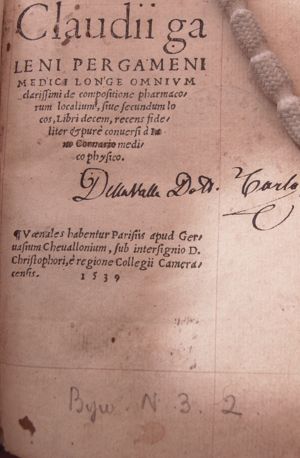 Claudii ga
LENI PERGAMENI
MEDICI LONGE OMNIVM
clarissimi de compositione pharmaco-
rum localium, siue secundum lo
cos, Libri decem, recens fide-
liter & purè conuersi à Ia
no Cornario medi
co physico.
Della Valle Dott. Carlo
¶Vænales habentur Parisiis apud Ger
uasium Cheuallonium, sub intersignio D.
Christophori, è regione Collegii Camera
censis.
1539
N. 3. 2